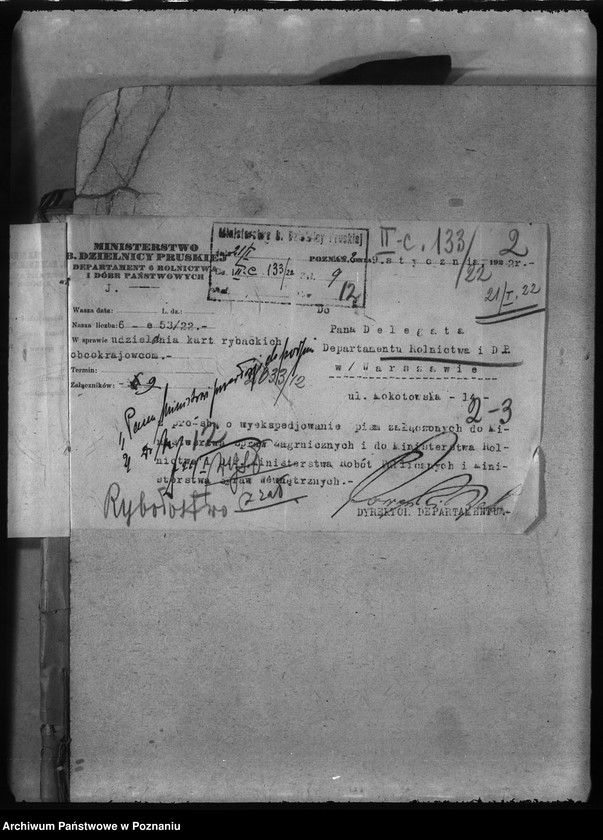 MINISTERSTWO
B. DZIELNICY PRUSKIEJ
DEPARTAMENT 6 ROLNICTWA
I DÓBR PAŃSTWOWYCH
J.
Ministerstwo B. Dzielnicy Pruskiej
21/I
II-c 133/22
9
12
II-C. 133/22
2
POZNAŃ, DNIA 9. stycznia 192 2r.-
21/I. 22
Wasza data: L. dz.:
Nasza liczba: 6 - e 53/22.-
W sprawie udzielenia kart rybackich
obcokrajowcom.-
Termin:
Załączników:
Do
Pana Delegata
Departamentu Rolnictwa i D.P.
w/Warszawie
ul. Mokotowska - 14-
2-3
z prośbą o wyekspedjowanie pism załączonych do Mi-
nisterstwa spraw zagrnicznych i do Ministerstwa Rol-
nictwa Ministerstwa Robót Publicznych i Mini-
sterstwa spraw wewnętrznych.-
Rybołostwo
DYREKTOR DEPARTAMENTU.-
Archiwum Państwowe w Poznaniu